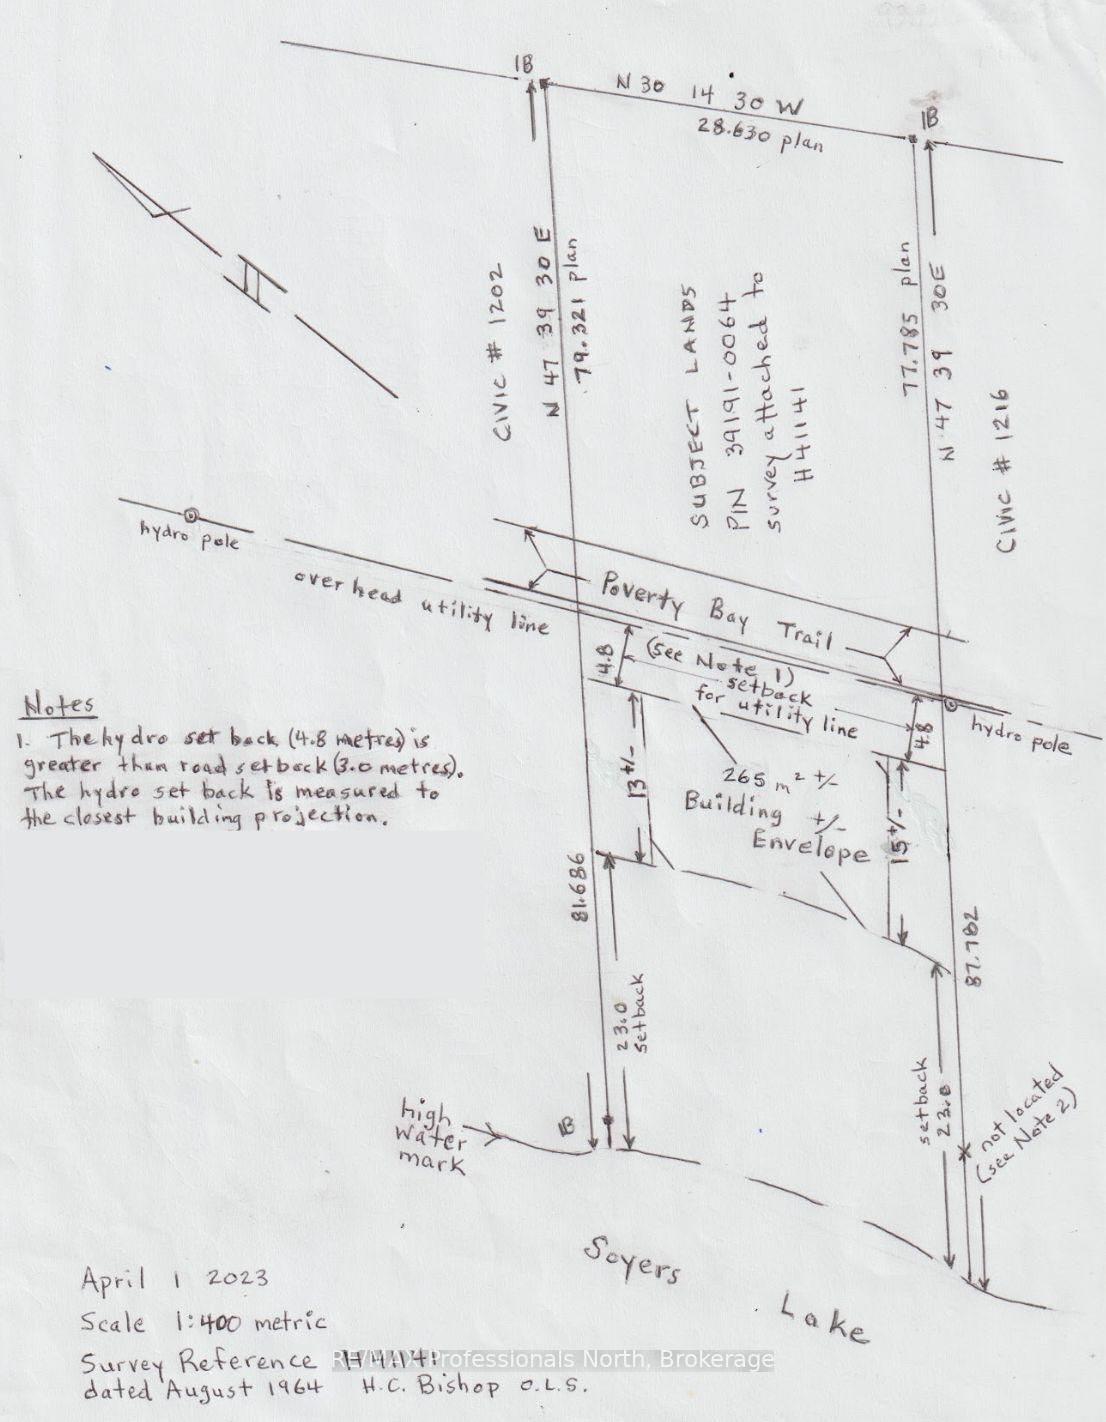 IB
N 30 14 30 W
28.630 plan
IB
N 47 39 30 E
79.321 plan
CIVIC # 1202
SUBJECT LANDS
PIN 39191-0064
survey attached to
H41141
77.785 plan
N 47 39 30E
CIVIC # 1216
hydro pole
over head utility line
Poverty Bay Trail
4.8
(see Note 1)
setback
for utility line
4.8
hydro pole
Notes
1. The hydro set back (4.8 metres) is
greater than road setback (3.0 metres).
The hydro set back is measured to
the closest building projection.
13+/-
265 m² +/-
Building +/-
Envelope
15+/-
81.686
87.782
23.0
setback
setback
23.0
not located
(see Note 2)
High
Water
mark
IB
Soyers
Lake
April 1 2023
Scale 1:400 metric
Survey Reference H41141
RE/MAX Professionals North, Brokerage
dated August 1964 H.C. Bishop O.L.S.